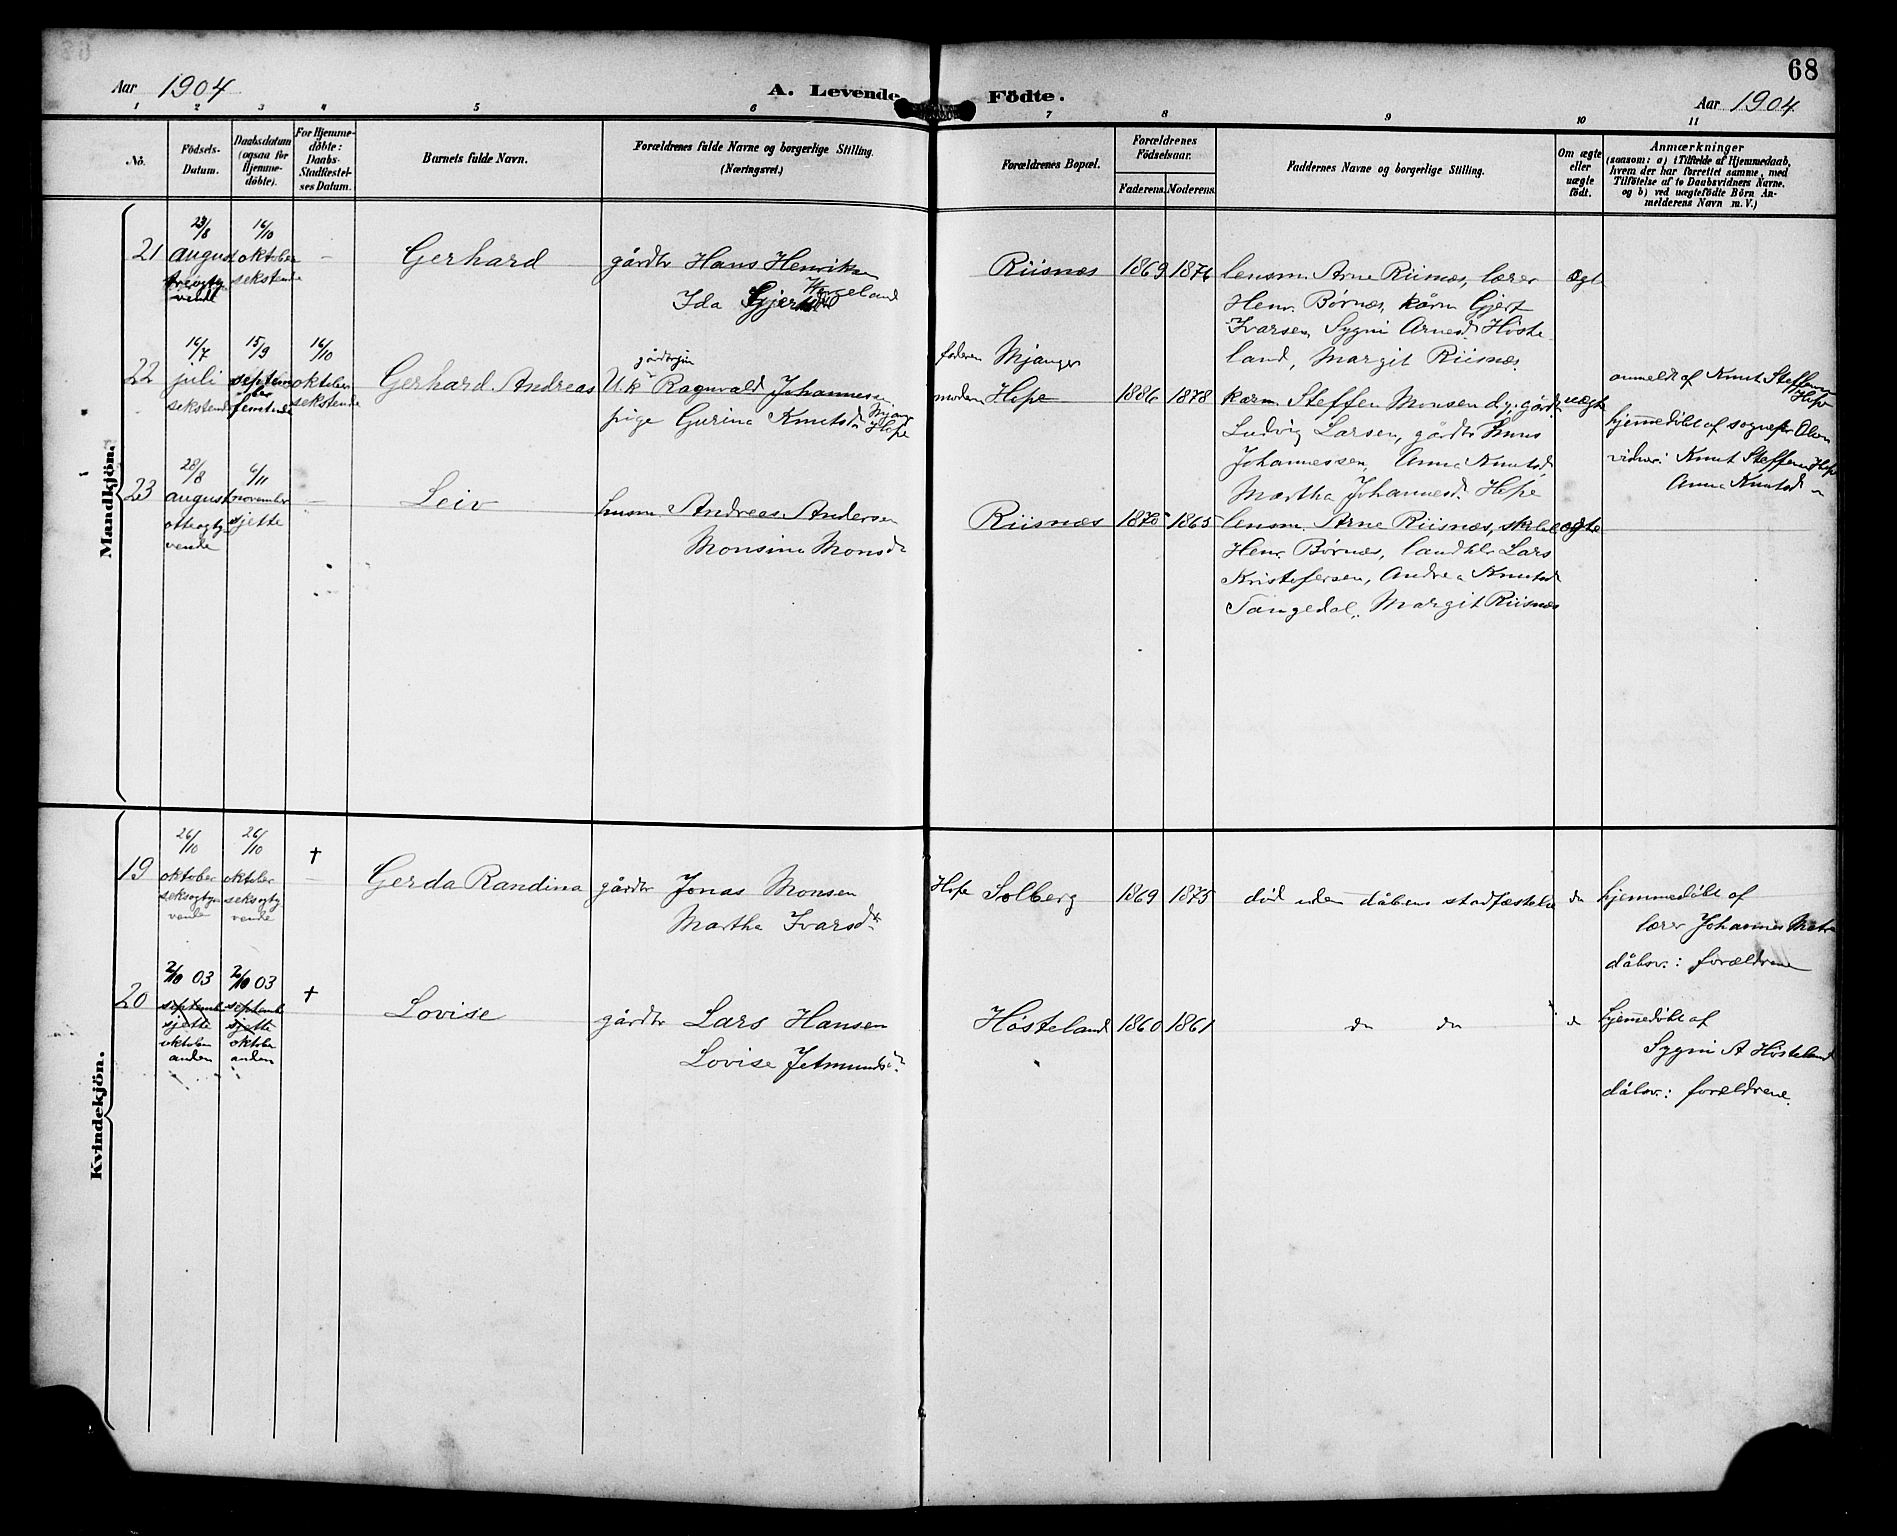 68
Aar 1904
A. Levende Födte.
Aar 1904
1 2 3 4 5 6 7 8 9 10 11
No.
Födsels-
Datum.
Daabsdatum
(ogsaa for
Hjemme-
döbte).
For Hjemme-
döbte:
Daabs-
Stadfæstel-
ses Datum.
Barnets fulde Navn.
Forældrenes fulde Navne og borgerlige Stilling.
(Næringsvei.)
Forældrenes Bopæl.
Forældrenes
Födselsaar.
Faderens. Moderens.
Faddernes Navne og borgerlige Stilling.
Om ægte
eller
uægte
födt.
Anmærkninger
(saasom: a) i Tilfælde af Hjemmedaab,
hvem der har forrettet samme, med
Tilföielse af to Daabsvidners Navne,
og b) ved uægtefödte Börn An-
melderens Navn m. V.)
Mandkjön.
21
23/8
august
treogty
vende
16/10
oktober
sekstende
–
Gerhard
gårdbr Hans Henriksen
Ida
Riisnæs
1869
lensm. Arne Riisnæs, lærer
Henr. Börnæs, kårm Gjert
Ivarsen, Sygni Arnesd. Höste-
land, Margit Riisnæs.
ægte
22
16/7
juli
sekstende
15/9
september
femtende
16/10
oktober
sekstende
Gerhard Andreas
U.k. Ragnvald Johannessen
pige Gurina Knutsdr Hope
faderen Mjanger
moderen Hope
1886 1878
kårm. Steffen Monsen d.y., gårdbr
Ludvig Larsen, gårdbr
Johannessen, Anna Knutsd
Martha Johannesd. Hope
uægte
anmeldt af Knut Steffensen
Hope
hjemmedöbt af sognepr. Olsen
vidner: Knut Steffensen Hope
Anna Knutsd "
23
28/8
august
otteogty
vende
6/11
november
sjette
–
Leiv
husm Andreas Andersen
Monsine Monsdr
Riisnæs
1870 1865
lensm. Arne Riisnæs,
Henr. Börnæs, landhlr Lars
Kristofersen, Andrea Knutsd
Tangedal, Margit Riisnæs
ægte
Kvindekjön.
19
26/10
oktober
seksogty
vende
26/10
oktober
seksogty
vende
†
–
Gerda Randina
gårdbr Jonas Monsen
Martha Ivarsdr
Hope Solberg
1869 1875
död uden dåbens stadfæstelse
do
hjemmedöbt af
lærer Johannes Matre
dåbsv.: forældrene
20
2/10 03
septemb
sjette
oktober
anden
2/10 03
septemb
sjette
oktober
anden
†
Lovise
gårdbr Lars Hansen
Lovise Jetmundsdr
Hösteland
1860 1861
do do
do
hjemmedöbt af
Sygni A Hösteland
dåbsv.: forældrene.